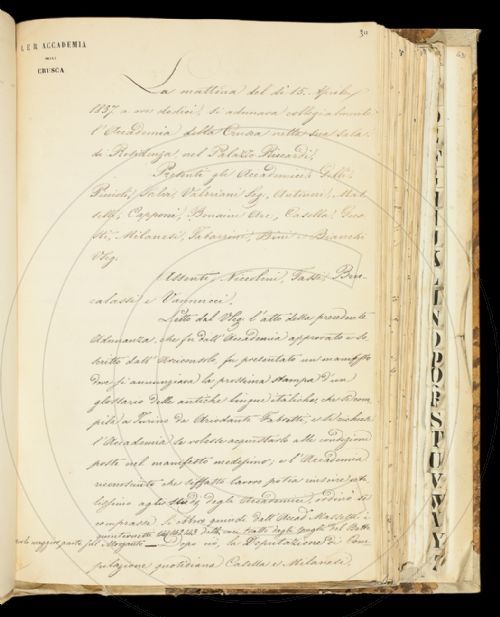 I. E R. ACCADEMIA
DELLA
CRUSCA
30
La mattina del dì 15. Aprile
1857 a ore dodici, si adunava collegialmente
l'Accademia della Crusca nella sua Sala
di Residenza nel Palazzo Riccardi.
Presenti gli Accademici
Valeriani Seg. Antinori,
Capponi, Bonaini Arc., Casella,
Milanesi, Tabarrini, Bini e Bianchi
VSeg.
Assenti, Niccolini,
e Vannucci.
Letto dal VSeg. l'atto della precedente
Adunanza, che fu dall'Accademia approvato e so-
scritto dall'Arciconsolo, fu presentato un manifesto
dove si annunziava la prossima stampa d'un
glossario delle antiche lingue italiche, che si com-
pila a Torino da Ariodante Fabretti, e si richiese
l'Accademia se volesse acquistarlo alle condizioni
poste nel manifesto medesimo; e l'Accademia
riconosciuto che siffatto lavoro potea essere uti-
lissimo agli studj degli Accademici, ordinò si
comprasse. Si ebbero quindi dall'Accad.
delle voci tratte dagli spogli del
maggior parte Morgante. — Dopo ciò, la Deputazione di Com-
pilazione quotidiana Casella e Milanesi,
N O P Q R S T U V W Y Z